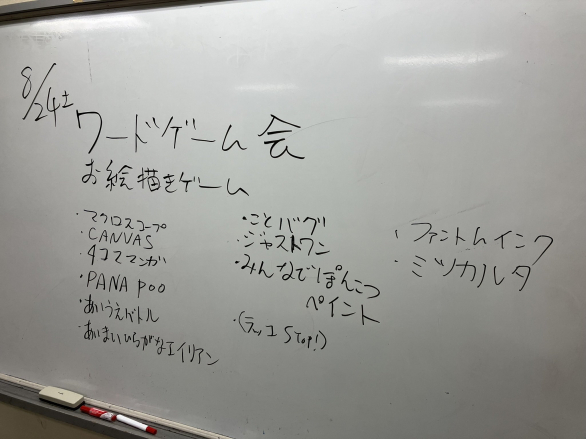 8/24土
ワードゲーム会
お絵描きゲーム
・マクロスコープ
・CANVAS
・4コママンガ
・PANA poo
・あいうえバトル
・あいまいひらがなエイリアン
・ことバグ
・ジャストワン
・みんなでぽんこつ
ペイント
・(ラッコSTOP!)
・ファントムインク
・ミツカルタ